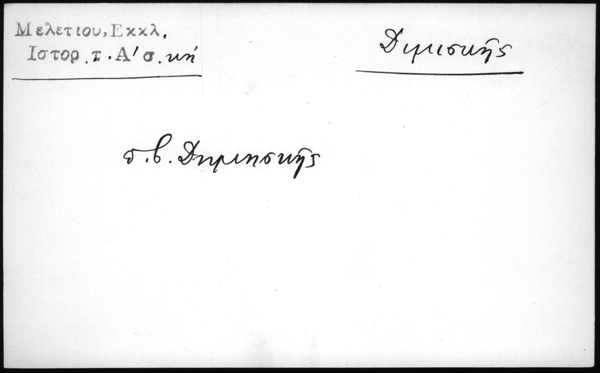 Μελετιου, Εκκλ.
Ιστορ. τ. Α' σ. κή
Διμισκῆς
σ. β. Δημησκῆς